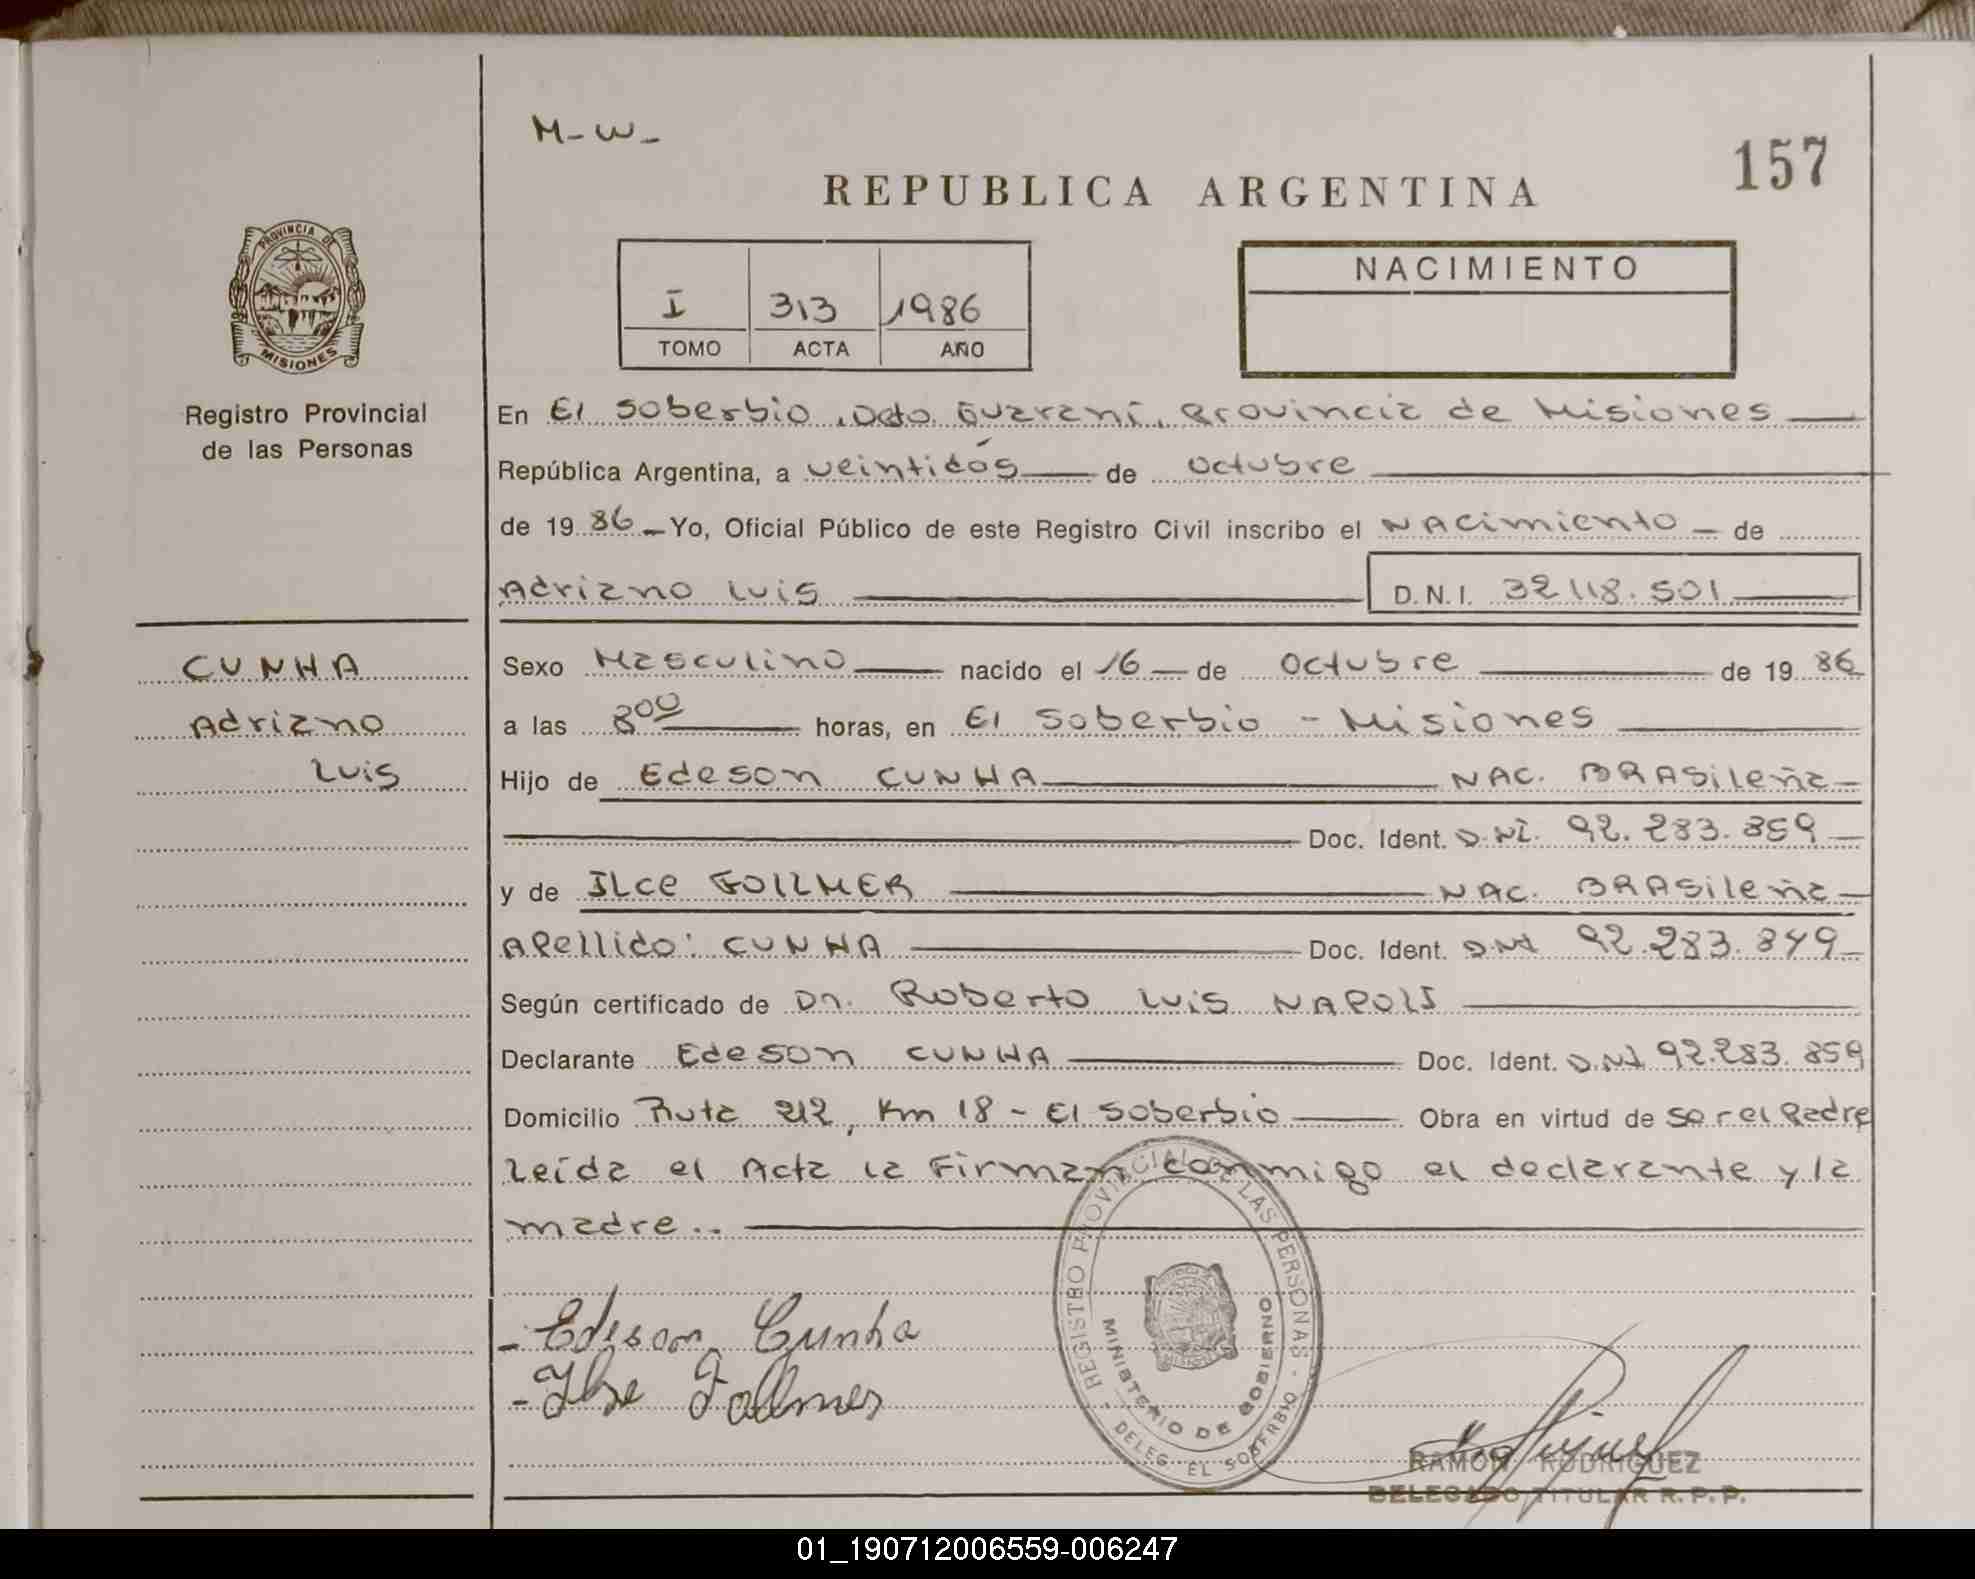 M-W-
157
REPUBLICA ARGENTINA
PROVINCIA DE
MISIONES
Registro Provincial
de las Personas
I 313 1986
TOMO ACTA AÑO
NACIMIENTO
En El Soberbio, Dcto. Guaraní, Provincia de Misiones
República Argentina, a veintidós de octubre
de 1986 Yo, Oficial Público de este Registro Civil inscribo el NAcimiento de
Adriano Luis D.N.I. 32.118.501
CUNHA
Adriano
Luis
Sexo Masculino nacido el 16 de Octubre de 1986
a las 8 00 horas, en El Soberbio - Misiones
Hijo de Edeson CUNHA NAC. BRASileña
Doc. Ident. D.NI. 92.283.859
y de ILce FOLLMER NAC. BRASileña
Apellido: CUNHA Doc. Ident. D.NI 92.283.849
Según certificado de Dr. Roberto Luis NAPOLI
Declarante Edeson CUNHA Doc. Ident. D.NI 92.283.859
Domicilio Ruta 212, Km 18 - El Soberbio Obra en virtud de ser el Padre
Leída el Acta la Firman conmigo el declarante y la
madre..
- Edeson Cunha
- Ilse Follmer
REGISTRO PROVINCIAL DE LAS PERSONAS
MINISTERIO DE GOBIERNO
DELEG. EL SOBERBIO
RAMON RODRIGUEZ
DELEGADO TITULAR R.P.P.
01_190712006559-006247